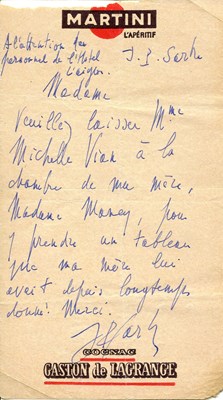 MARTINI
L'APÉRITIF
A l'attention du
personnel de l'Hôtel
L'aiglon
J. P. Sartre
Madame
Veuillez laisser Mme
Michelle Vian à la
chambre de ma mère,
Madame Mancy, pour
y prendre un tableau
que ma mère lui
avait depuis longtemps
donné. Merci.
JP Sartre
COGNAC
GASTON de LAGRANGE